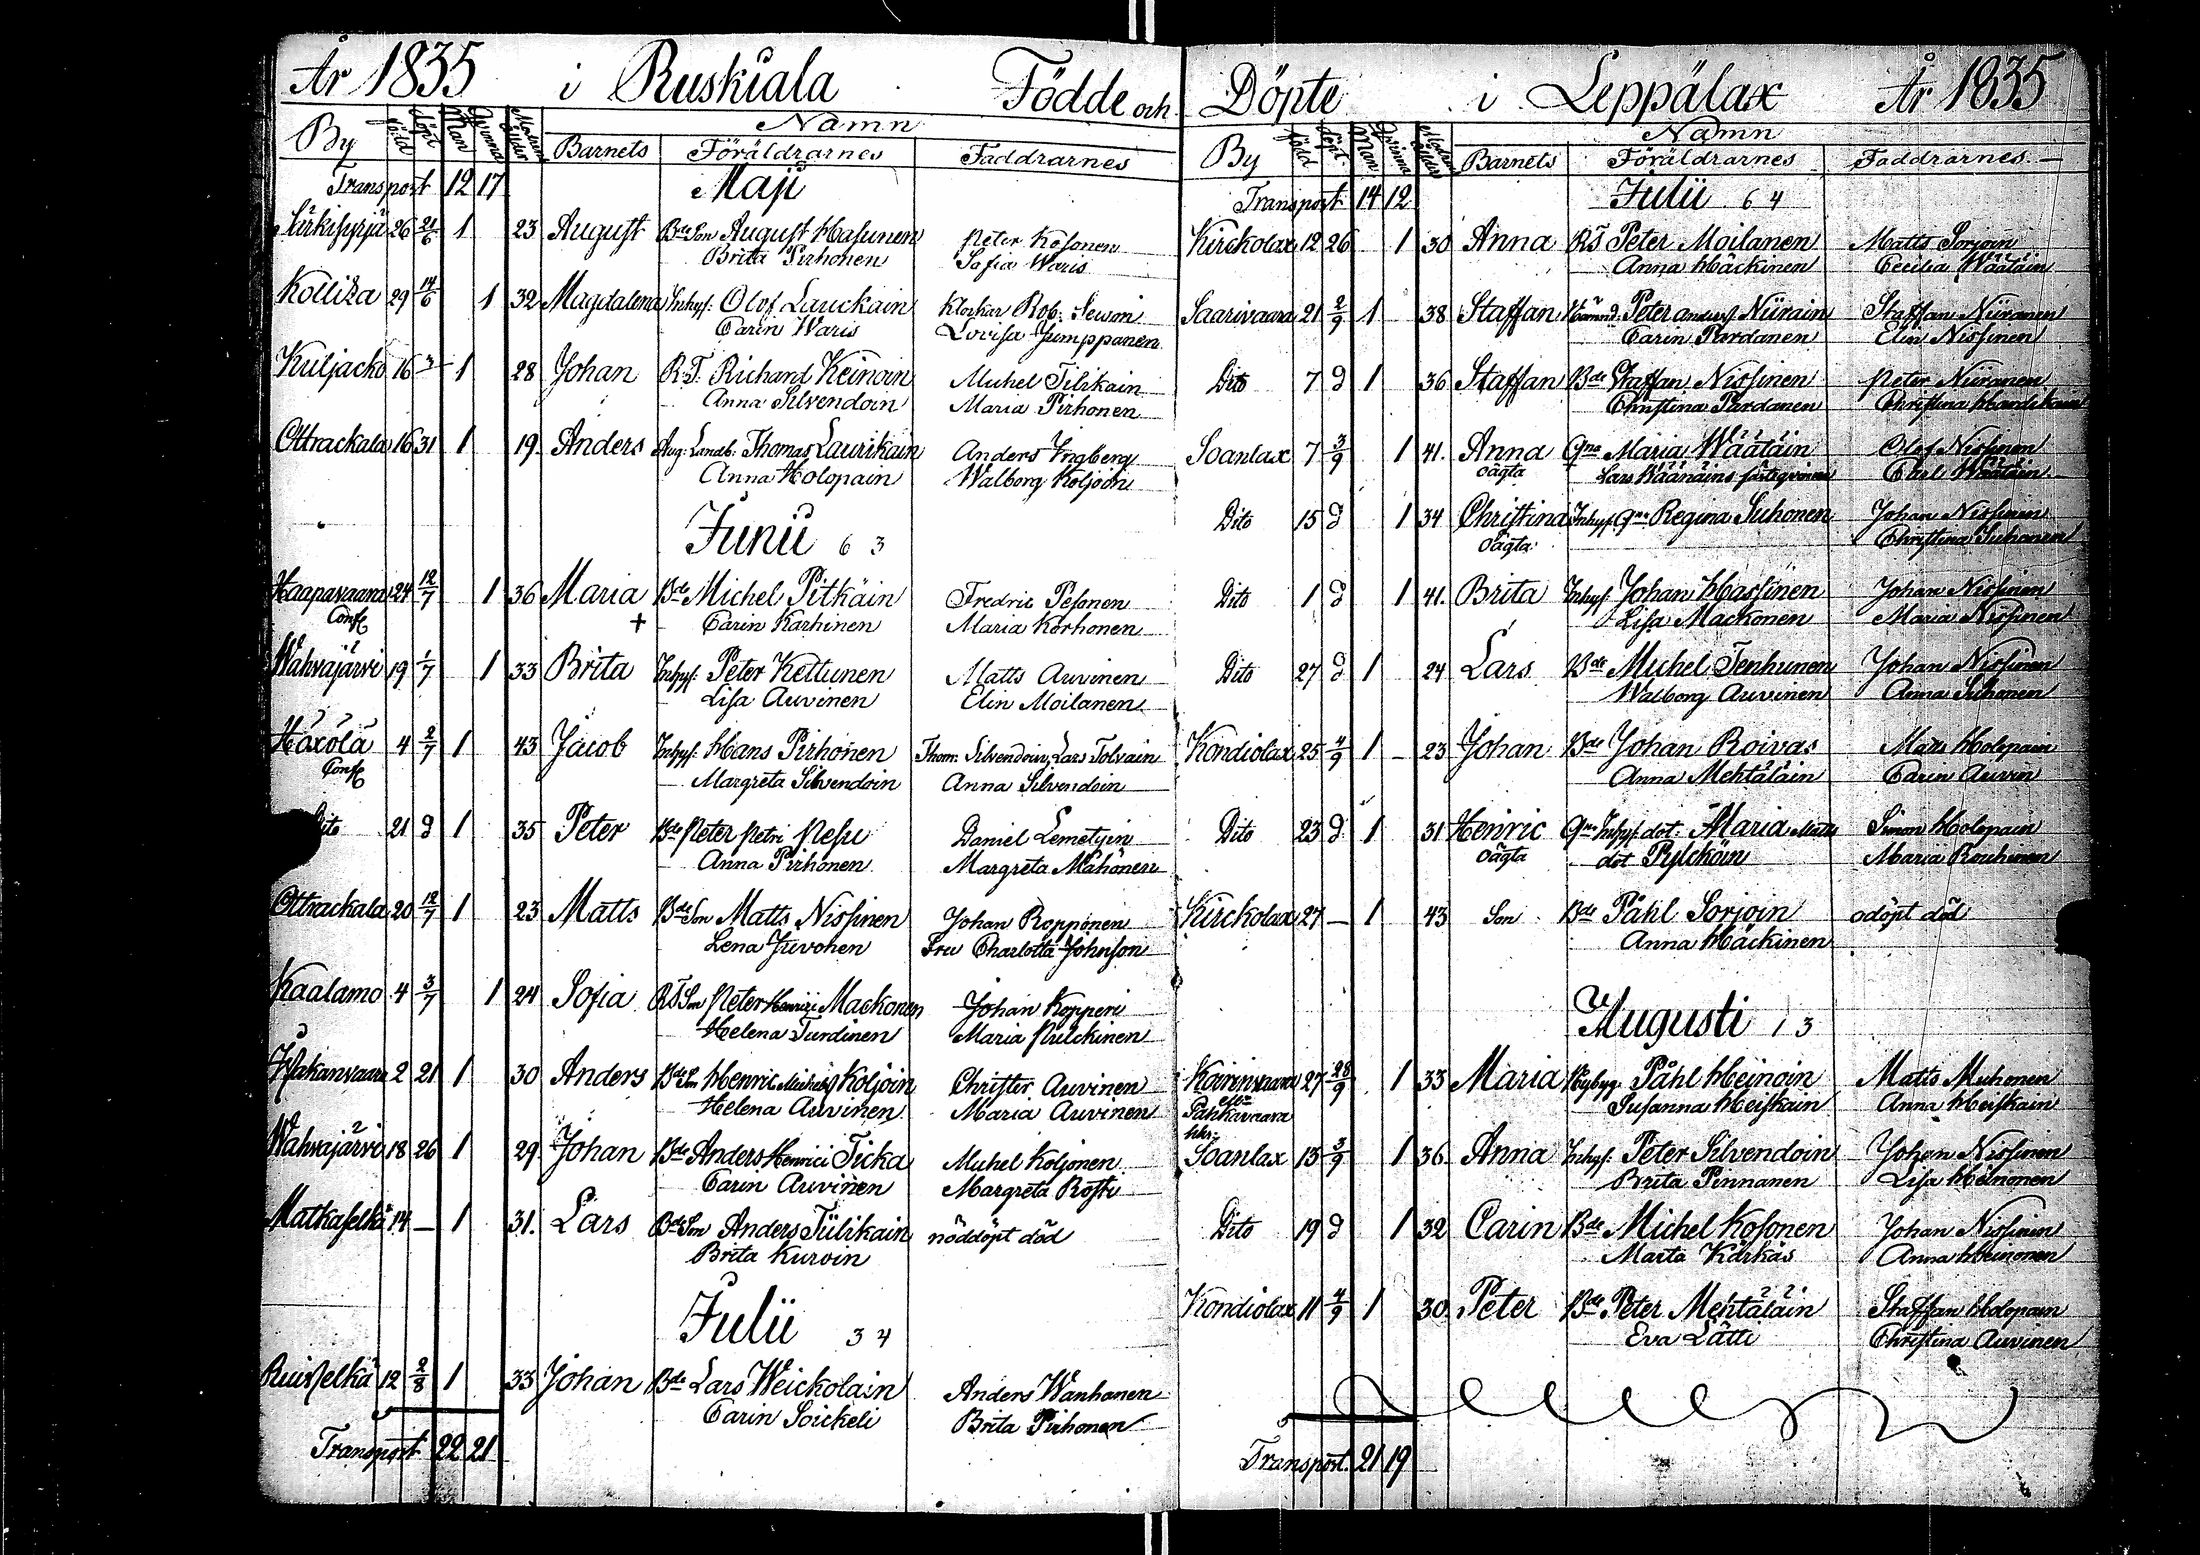 År 1835 i Ruskiala Födde och
By född döpt Man Qvinna Modrens ålder Namn
Barnets Föräldrarnes Faddrarnes
Transport 12 17 Maji
26 21/6 1 23 August Bde Son August Hasunen Peter Kosonen
Brita Pirhonen Sofia Waris
29 14/6 1 32 Magdalena Inhys: Olof Lauckain Klockar Rob:
Carin Waris Lovisa Jumppanen
Kuljacko 16 1 28 Johan R.T. Richard Keinoin Michel Tilikain
Anna Silvendoin Maria Pirhonen
Ottrackala 16 31 1 19 Anders Landb: Thomas Laurikain Anders Ingberg
Anna Holopain Walborg Koljoin
Junii 6 3
Haapavaara 24 12/7 1 36 Maria Bde Michel Pitkäin Fredric Pesonen
+ Carin Karhinen Maria Korhonen
Wahvajärvi 19 1/7 1 33 Brita Inhys: Peter Kettunen Matts Auvinen
Lisa Auvinen Elin Moilanen
4 2/7 1 43 Jacob Inhys: Hans Pirhonen Thom: Silvendoin, Lars Tolvain
Margreta Silvendoin Anna Silvendoin
Dito 21 d 1 35 Peter Bde Peter Petri Pesu Daniel Lemetyin
Anna Pirhonen Margreta Mähönen
Ottrackala 20 12/7 1 23 Matts Bde Son Matts Nissinen Johan Ropponen
Lena Juvonen Fru Charlotta Johnson
Kaalamo 4 3/7 1 24 Sofia RT Son Peter Henrici Mackonen Johan Kopperi
Helena Turdinen Maria Pulckinen
2 21 1 30 Anders Bde Son Henric Koljoin Christer Auvinen
Helena Auvinen Maria Auvinen
Wahvajärvi 18 26 1 29 Johan Bde Anders Henrici Ticka Michel Koljonen
Carin Auvinen Margreta
Matkaselkä 14 – 1 31. Lars Bde Son Anders Tiilikain nöddöpt död
Brita Kurvin
Julii 3 4
Ruisselkä 12 2/8 1 33 Johan Bde Lars Weickolain Anders Wanhanen
Carin Soickeli Brita Pirhonen
Transport 22 21
Döpte i Leppälax År 1835
By född döpt Man Qvinna Modrens ålder Namn
Barnets Föräldrarnes Faddrarnes
Transport 14 12 Julii 6 4
Kirckolax 12 26 1 30 Anna RT Peter Moilanen Matts Sorjoin
Anna Häckinen Cecilia Wäätäin
Saarivaara 21 2/9 1 38 Staffan Peter Niirain Staffan Niiranen
Carin Pardanen Elin Nissinen
Dito 7 d 1 36 Staffan Bde Staffan Nissinen Peter Niiranen
Christina Pardanen Christina
Soanlax 7 3/9 1 41. Anna Qna Maria Wäätäin Olof Nissinen
oägta Lars Carl Wäätäin
Dito 15 d 1 34 Christina Inhys. Qna Regina Suhonen Johan Nissinen
oägta Christina Suhonen
Dito 1 d 1 41. Brita Inhys: Johan Hassinen Johan Nissinen
Lisa Mackonen Maria Nissinen
Dito 27 d 1 24 Lars Bde Michel Tenhunen Johan Nissinen
Walborg Auvinen Anna Suhonen
Kondiolax 25 4/9 1 – 23 Johan Bde Johan Roivas Matts Holopain
Anna Mehtäläin Carin Auvin
Dito 23 d 1 31 Henric Qna Inhys. dot: Maria Matts Simon Holopain
oägta dot Pylckäin Maria Rouhinen
Kirckolax 27 – 1 43 Son Bde Påhl Sorjoin odöpt död
Anna Häckinen
Augusti 1 3
27 28/9 1 33 Maria Nybyg: Påhl Heinoin Matts Muhonen
Susanna Heiskain Anna Heiskain
Soanlax 13 3/9 1 36 Anna Inhys. Peter Silvendoin Johan Nissinen
Brita Pinnanen Lisa Heinonen
Dito 19 d 1 32 Carin Bde Michel Kosonen Johan Nissinen
Marta Kärkäs Anna Heinonen
Kondiolax 11 4/9 1 30 Peter Bde Peter Mehtäläin Staffan Holopain
Eva Lätti Christina Auvinen
Transport. 21 19